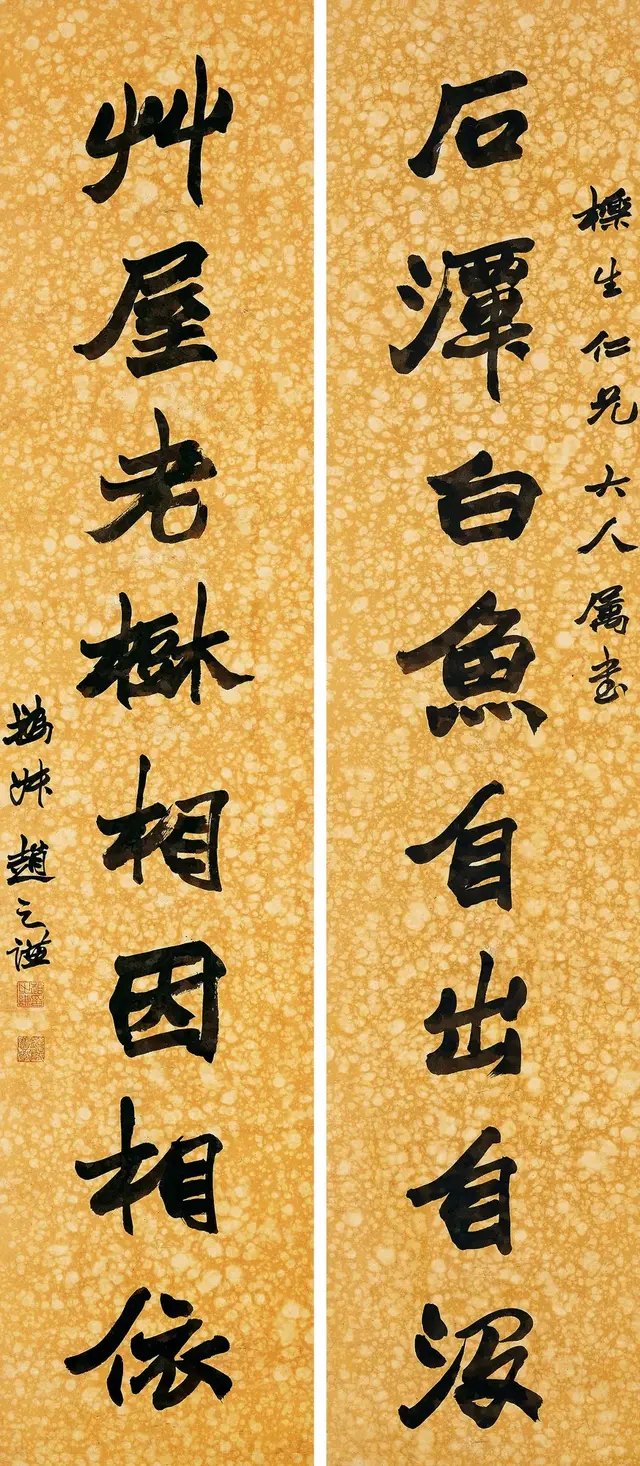 櫟生仁兄大人属書
石潭白魚自出自沒
艸屋老樹相因相依
撝叔趙之謙